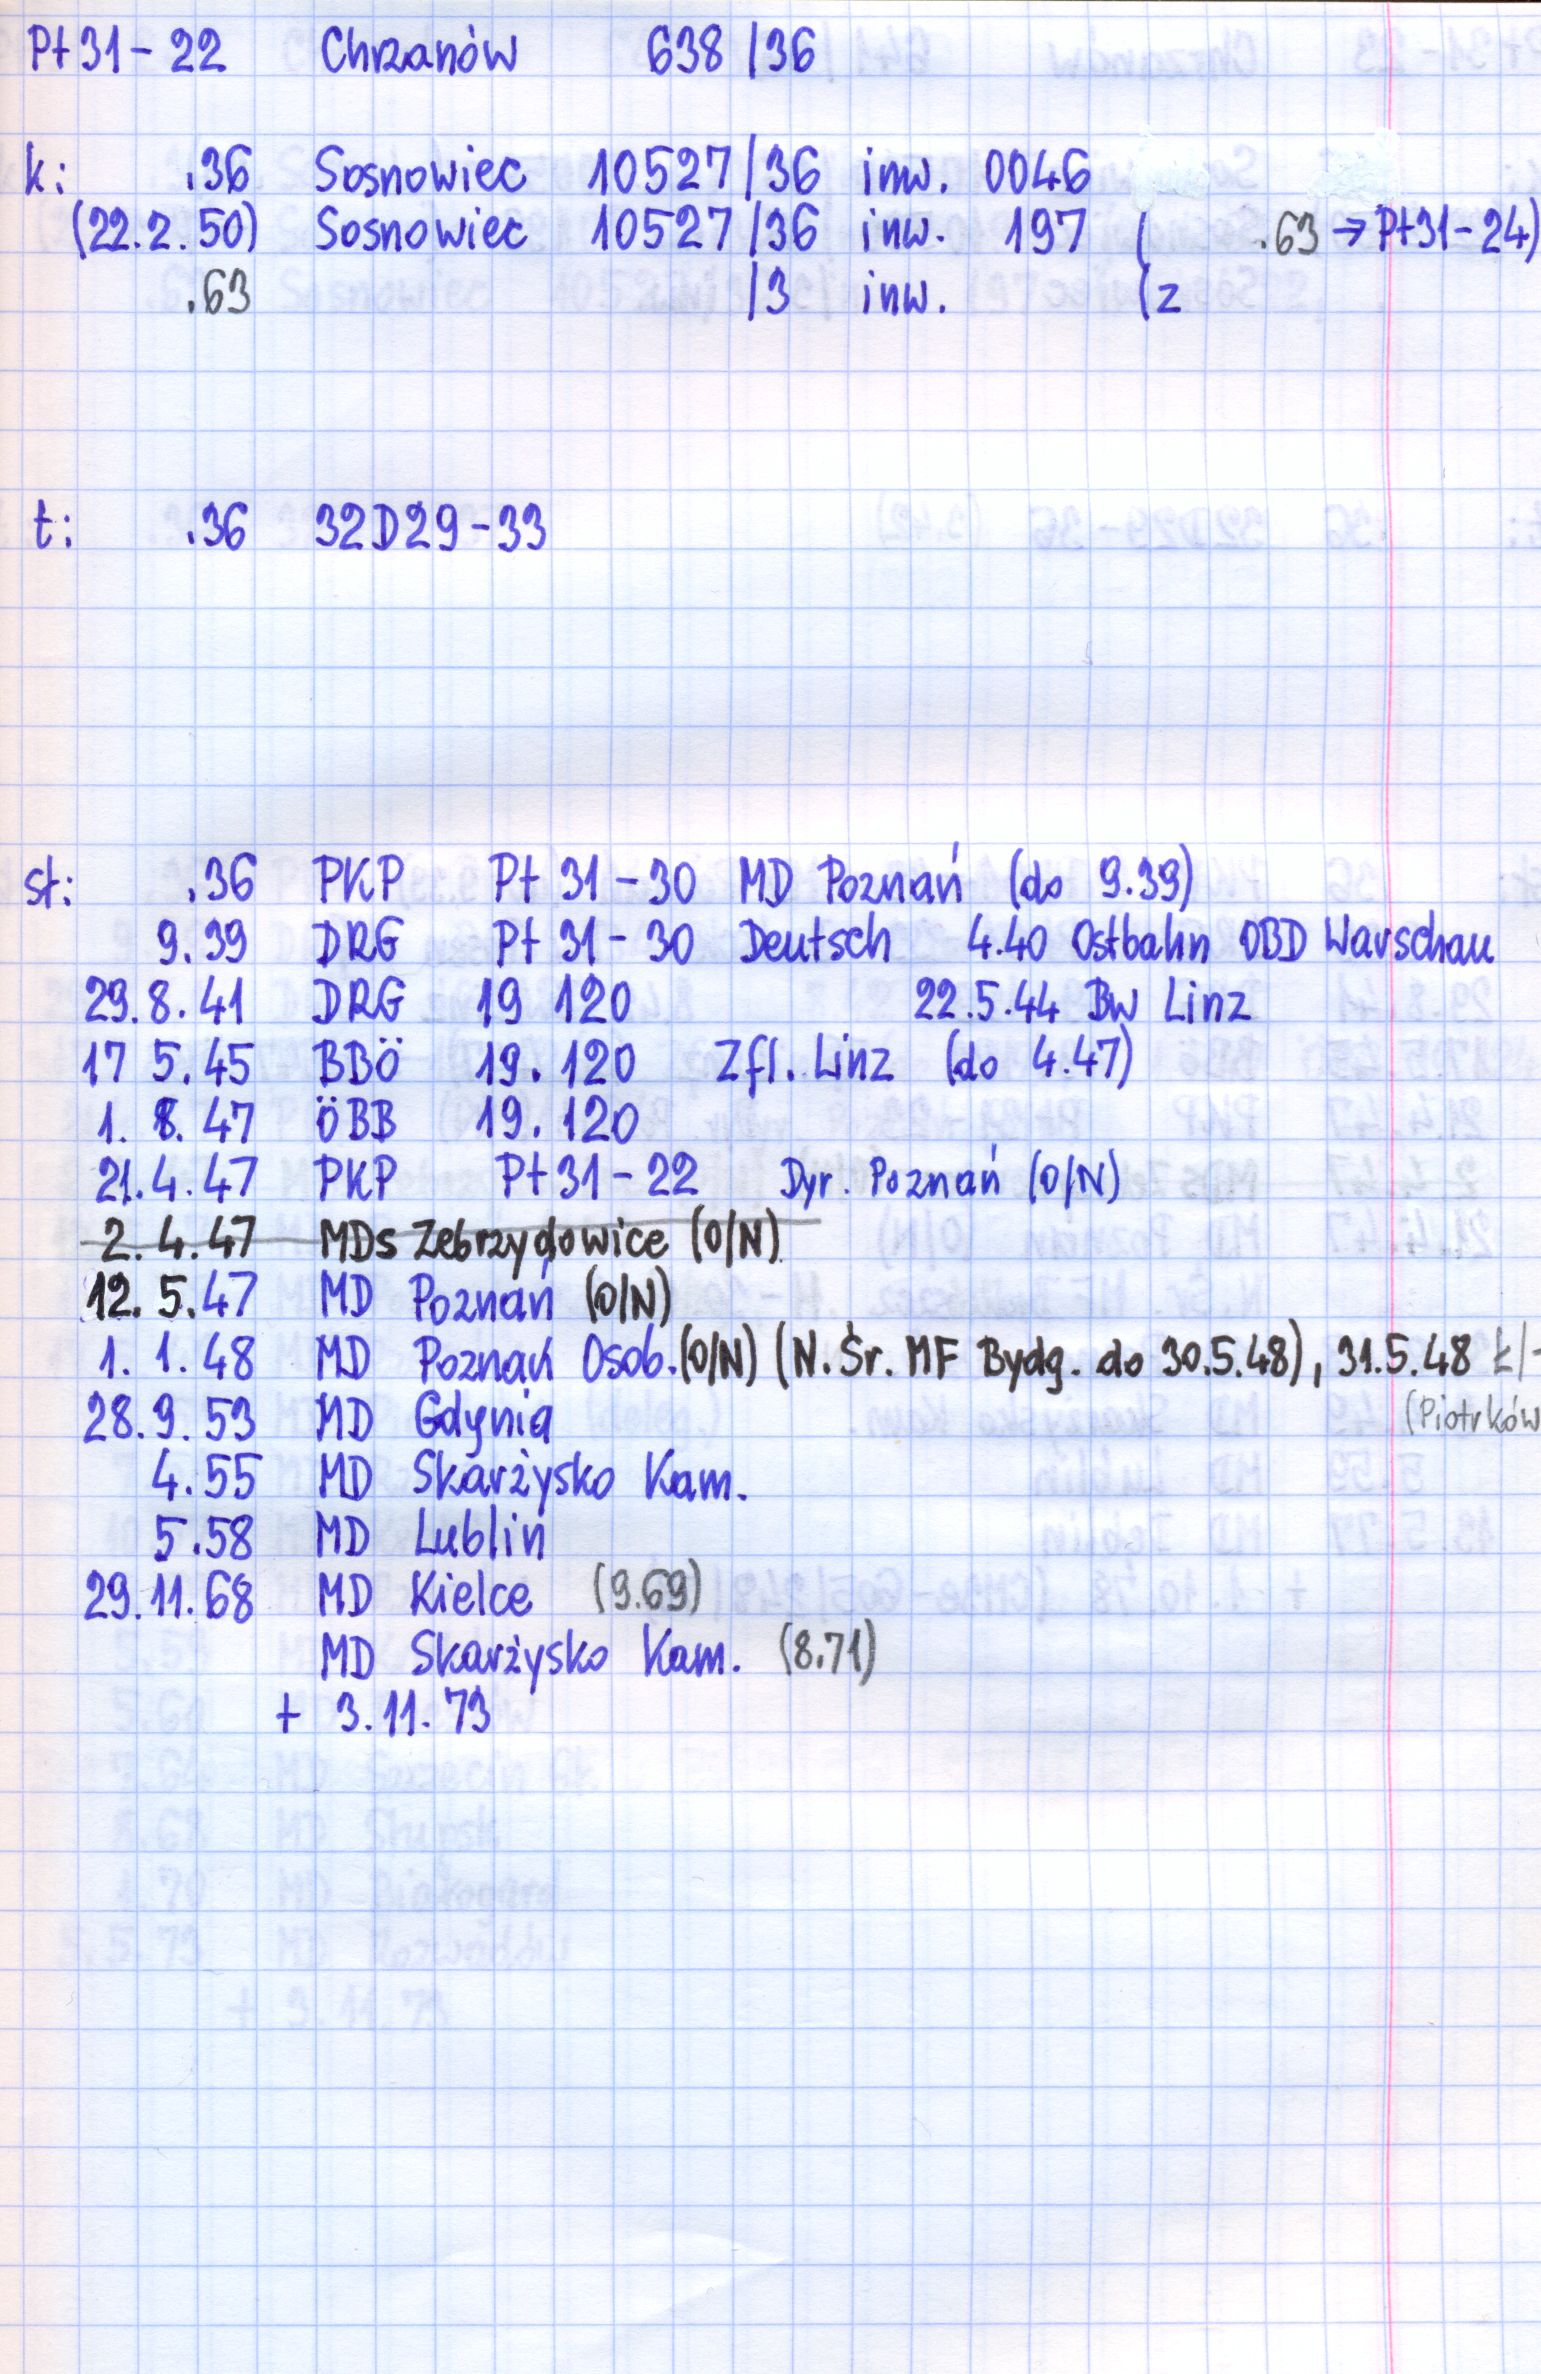 Pt31-22 Chrzanów 638/36
k: .36 Sosnowiec 10527/36 inw. 0046
(22.2.50) Sosnowiec 10527/36 inw. 197 ( .63 → Pt31-24)
.63 /3 inw. (z
t: .36 32D29-33
st: .36 PKP Pt 31-30 MD Poznań (do 9.39)
9.39 DRG Pt 31-30 Deutsch 4.40 Ostbahn OBD Warschau
29.8.41 DRG 19 120 22.5.44 BW Linz
17 5.45 BBÖ 19.120 Zfl. Linz (do 4.47)
1. 8. 47 ÖBB 19.120
21.4.47 PKP Pt31-22 Dyr. Poznań (O/N)
2.4.47 MDs Zebrzydowice (O/N)
12.5.47 MD Poznań (O/N)
1. 1. 48 MD Poznań Osob. (O/N) (N.Śr. MF Bydg. do 30.5.48), 31.5.48 Ł/
28.9.53 MD Gdynia (Piotrków
4.55 MD Skarżysko Kam.
5.58 MD Lublin
29.11.68 MD Kielce (9.69)
MD Skarżysko Kam. (8.71)
+ 3.11.73